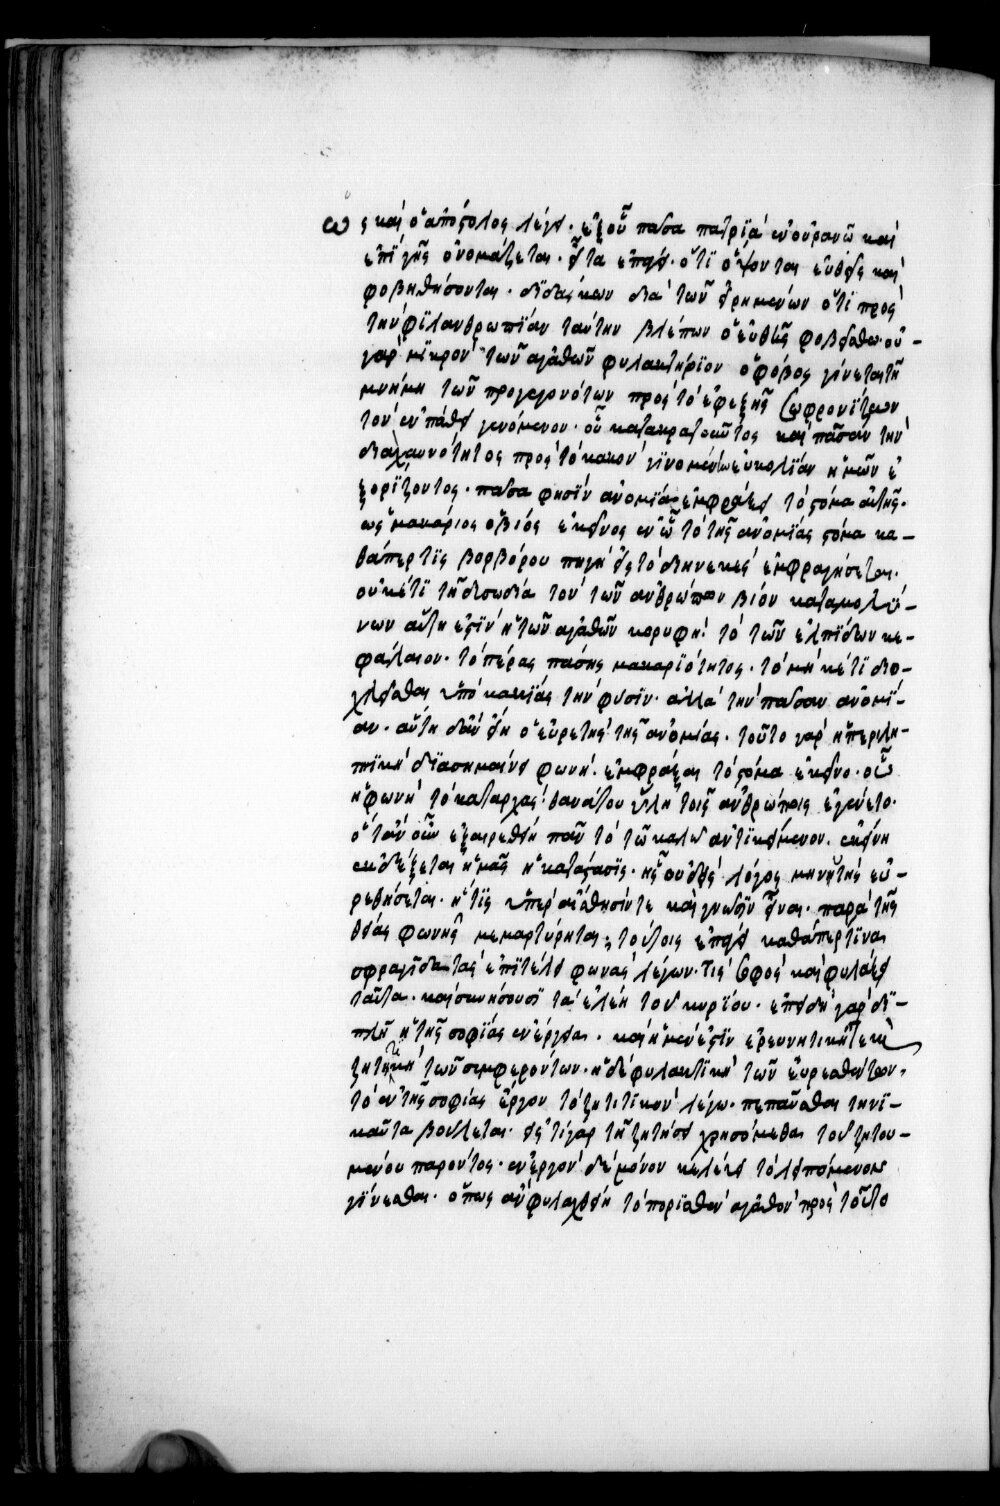 ὡς καὶ ὁ ἀπόστολος λέγει. ἐξ οὗ πᾶσα πατριὰ ἐν οὐρανῶ καὶ
ἐπὶ γῆς ὀνομάζεται. εἶτα ἐπάγει. ὅτι ὄψονται εὐθεῖς καὶ
φοβηθήσονται. διδάσκων διὰ τῶν εἰρημένων ὅτι πρὸς
τὴν φιλανθρωπίαν ταύτην βλέπων ὁ εὐθὺς φοβεῖσθω οὐ -
γὰρ μικρὸν τῶν ἀγαθῶν φυλακτήριον ὁ φόβος γίνεται τῆ
μνήμη τῶν προγεγονότων πρὸς τὸ ἐφεξῆς σωφρονίζων
τὸν ἐν πάθει γενόμενον. οὗ κατακρατοῦντος καὶ πᾶσαν τὴν
διὰ χαυνότητος πρὸς τὸ κακὸν γινομένην εὐκολίαν ἡμῶν ἐ
ξορίζοντος. πᾶσα φησὶν ἀνομία ἐμφράξει τὸ στόμα αὐτῆς.
ὡς μακάριος ὁ βίος ἐκεῖνος ἐν ὧ τὸ τῆς ἀνομίας στόμα κα -
θάπερ τις βορβόρου πηγὴ εἰς τὸ διηνεκὲς ἐμφραγήσεται.
οὐκέτι τῆ δυσωδία τὸν τῶν ἀνθρώπων βίον καταμολύ -
νων αὕτη ἐστὶν ἡ τῶν ἀγαθῶν κορυφὴ. τὸ τῶν ἐλπίδων κε -
φάλαιον. τὸ πέρας πάσης μακαριότητος. τὸ μηκέτι διο -
χλεῖσθαι ὑπὸ κακίας τὴν φύσιν. ἀλλὰ τὴν πᾶσαν ἀνομί -
αν. αὕτη δ' ἂν εἴη ὁ εὑρετὴς τῆς ἀνομίας. τοῦτο γὰρ ἡ περιλη -
πτικὴ διασημαίνει φωνὴ. ἐμφράξαι τὸ στόμα ἐκεῖνο. οὗ
ἡ φωνὴ τὸ καταρχὰς θανάτου ὕλη τοῖς ἀνθρώποις ἐγένετο.
ὅταν οὖν ἐξαιρεθείη πᾶν τὸ τῶ καλῶ ἀντικείμενον. ἐκείνη
ἐκδέξεται ἡμᾶς ἡ κατάστασις. ἧς οὐδεὶς λόγος μηνυτὴς εὑ -
ρεθήσεται. ἥτις ὑπὲρ αἴσθησίν τε καὶ γνῶσιν εἶναι. παρὰ τῆς
θείας φωνῆς μεμαρτύρηται. τούτοις ἐπάγει καθάπερ τινα
σφραγίδα ταῖς ἐπιτελ φωνὰς λέγων. τίς σοφὸς καὶ φυλάξει
ταῦτα. καὶ συνήσουσι τὰ ἐλέη τοῦ κυρίου. ἐπειδὴ γὰρ δι -
πλῆ ἡ τῆς σοφίας ἐνέργεια. καὶ ἡ μέν ἐστιν ἐρευνητική τε καὶ
ζητητικὴ τῶν συμφερόντων. ἡ δὲ φυλακτικὴ τῶν εὑρεθέντων.
τὸ ἓν τῆς σοφίας ἔργον τὸ ζητιτικὸν λέγω. πεπαῦσθαι τηνι -
καῦτα βούλεται. εἰς τί γὰρ τῆ ζητήσει χρησόμεθα τοῦ ζητου -
μένου παρόντος. ἐνεργὸν δὲ μόνον κελεύει τὸ λειπόμενον
γίνεσθαι. ὅπως ἂν φυλαχθείη τὸ πορισθὲν ἀγαθὸν πρὸς τοῦτο